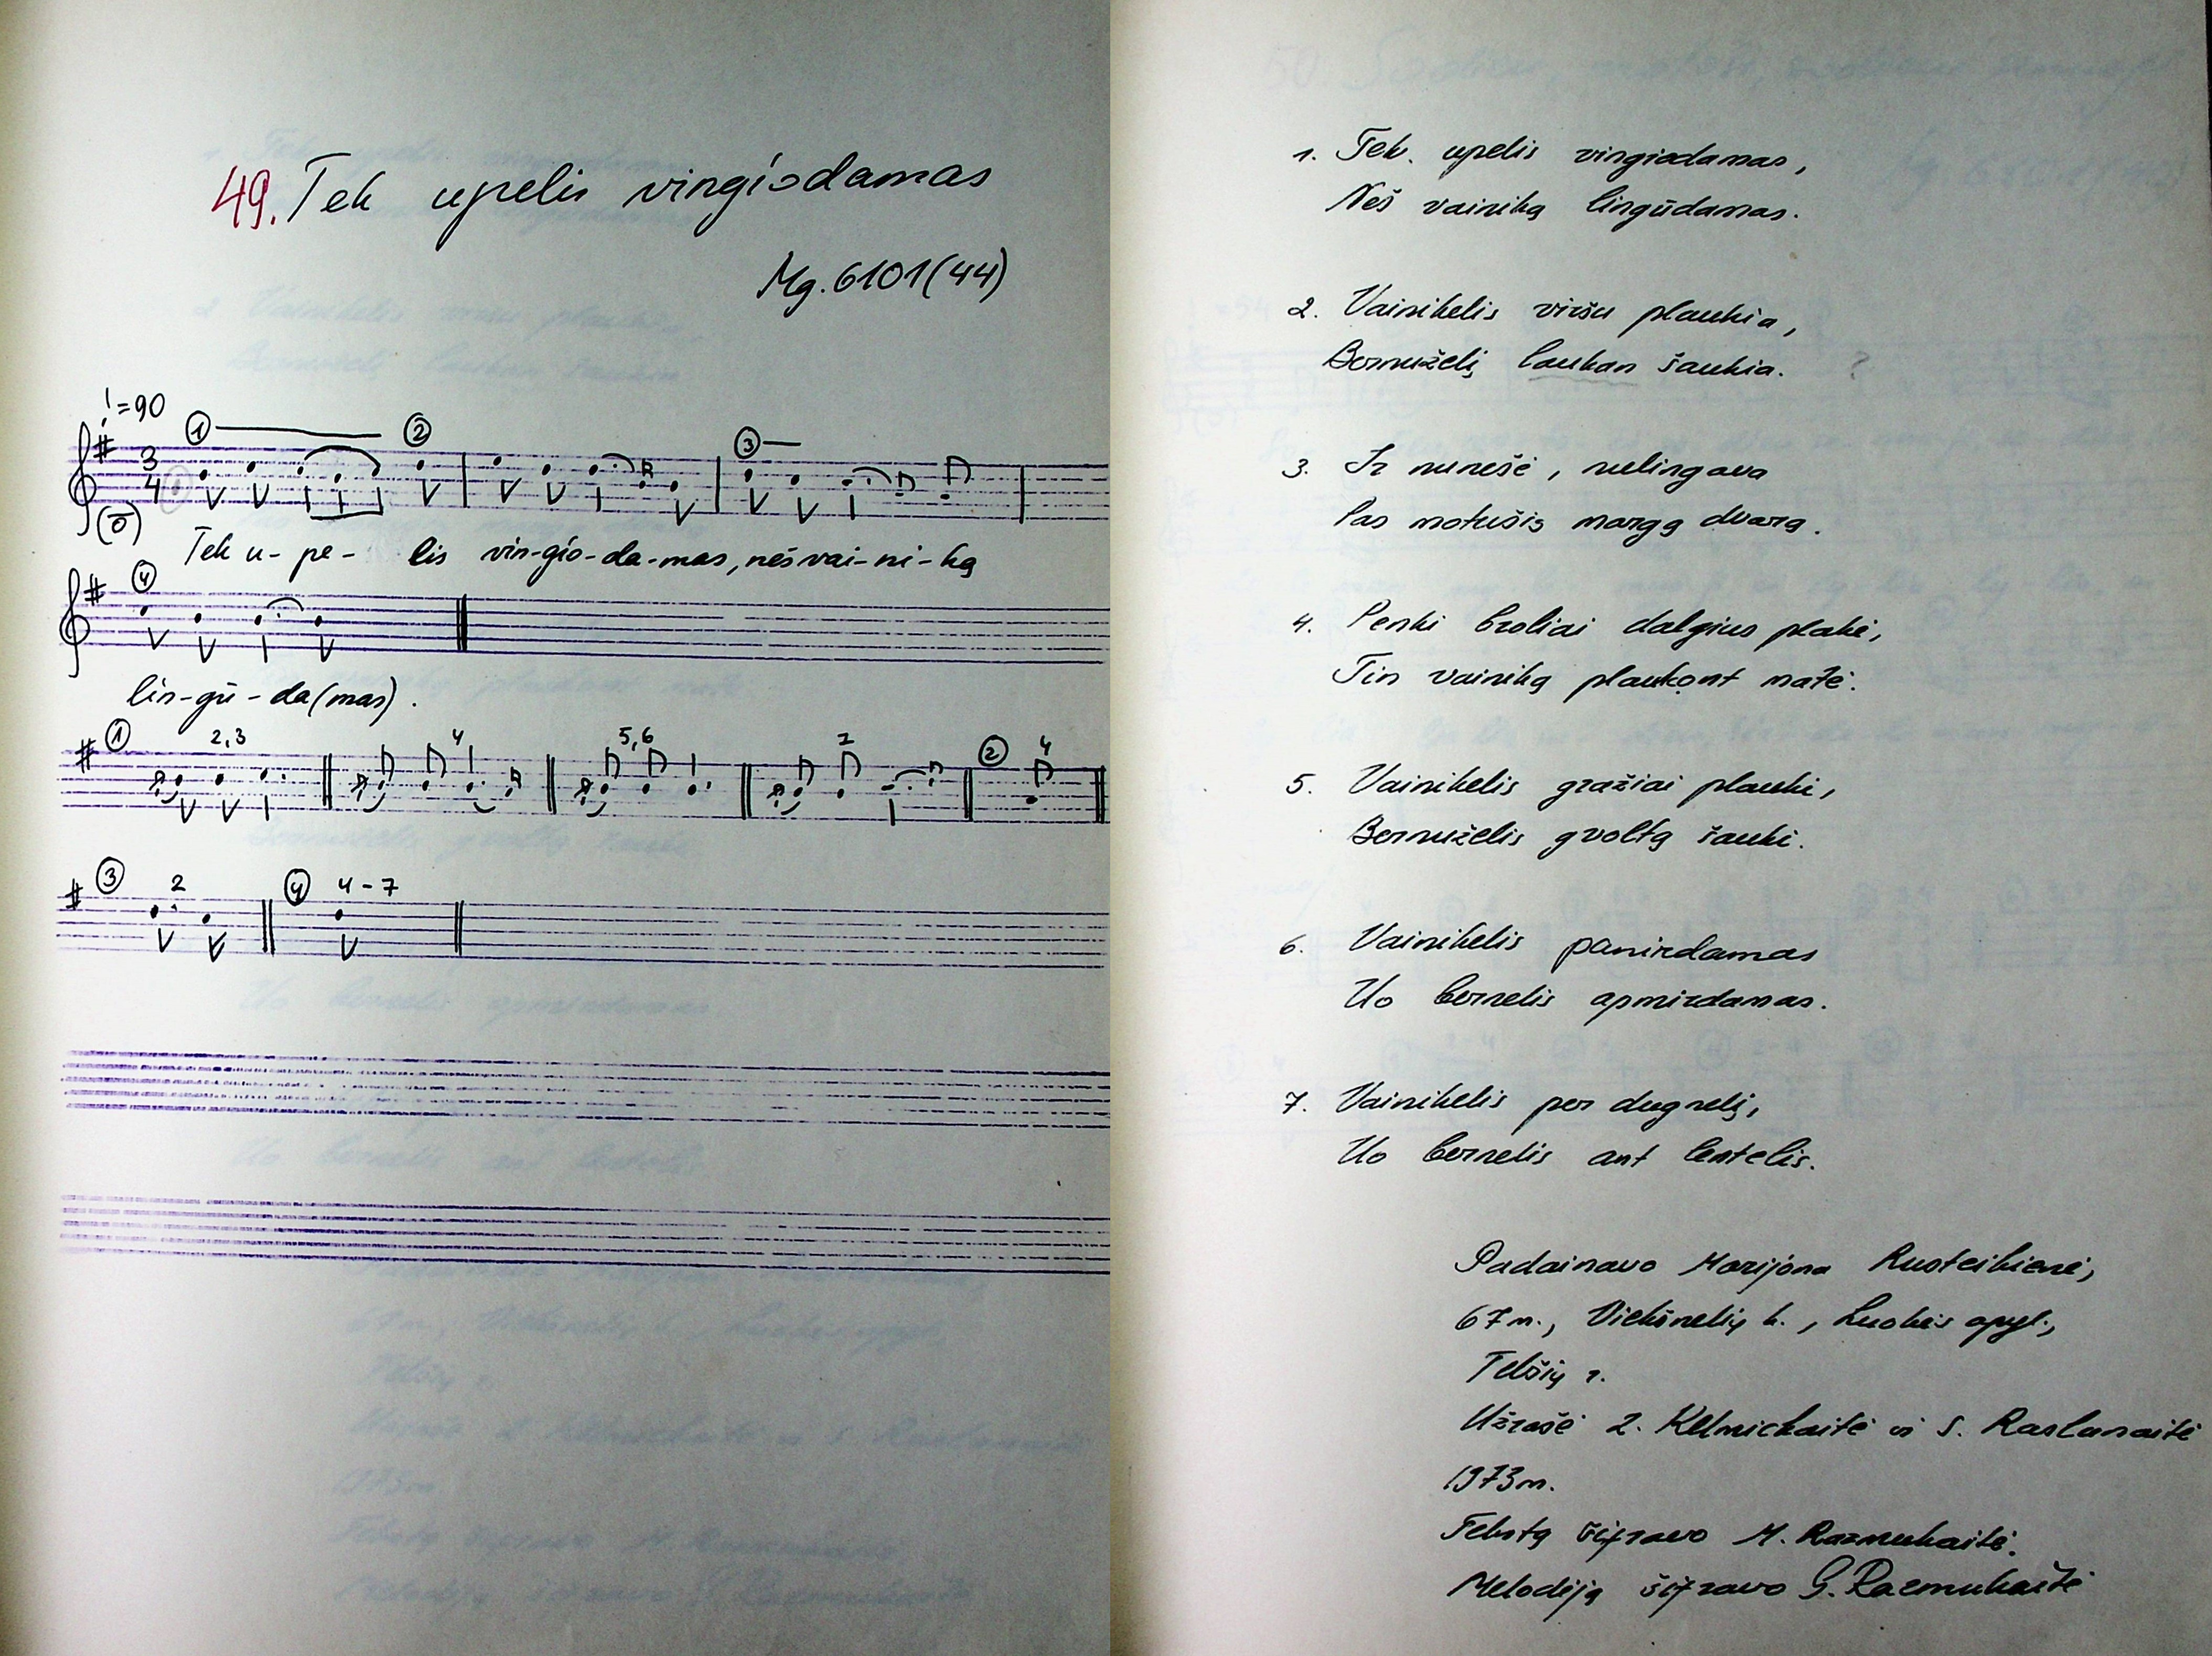 49. Tek upelis vingiodamas
Mg. 6101(44)
♩=90
① ② ③
3
4
(o)
Tek u- pe- lis vin-gio-da-mas, neš vai-ni-ką
④
lin-gū-da(mas).
① 2,3 4 5,6 7 ② 4
③ 2 ④ 4-7
1. Tek. upelis vingiodamas,
Neš vainiką lingūdamas.
2. Vainikelis viršu plaukia,
Bernuželį laukan šaukia. ?
3. Ir nunešė, nulingava
Pas motušis margą dvarą.
4. Penki broliai dalgius plakė,
Tin vainiką plaukont matė.
5. Vainikelis gražiai plauki,
Bernuželis gvoltą šauki.
6. Vainikelis panirdamas
Uo bernelis apmirdamas.
7. Vainikelis per dugnelį,
Uo bernelis ant lentelis.
Padainavo Marijona Rusteikienė,
67 m., Viekšnelių k., Luokės apyl.,
Telšių r.
Užrašė Z. Kelmickaitė ir S. Raslanaitė
1973 m.
Tekstą šifravo M. Razmukaitė.
Melodiją šifravo G. Razmukaitė